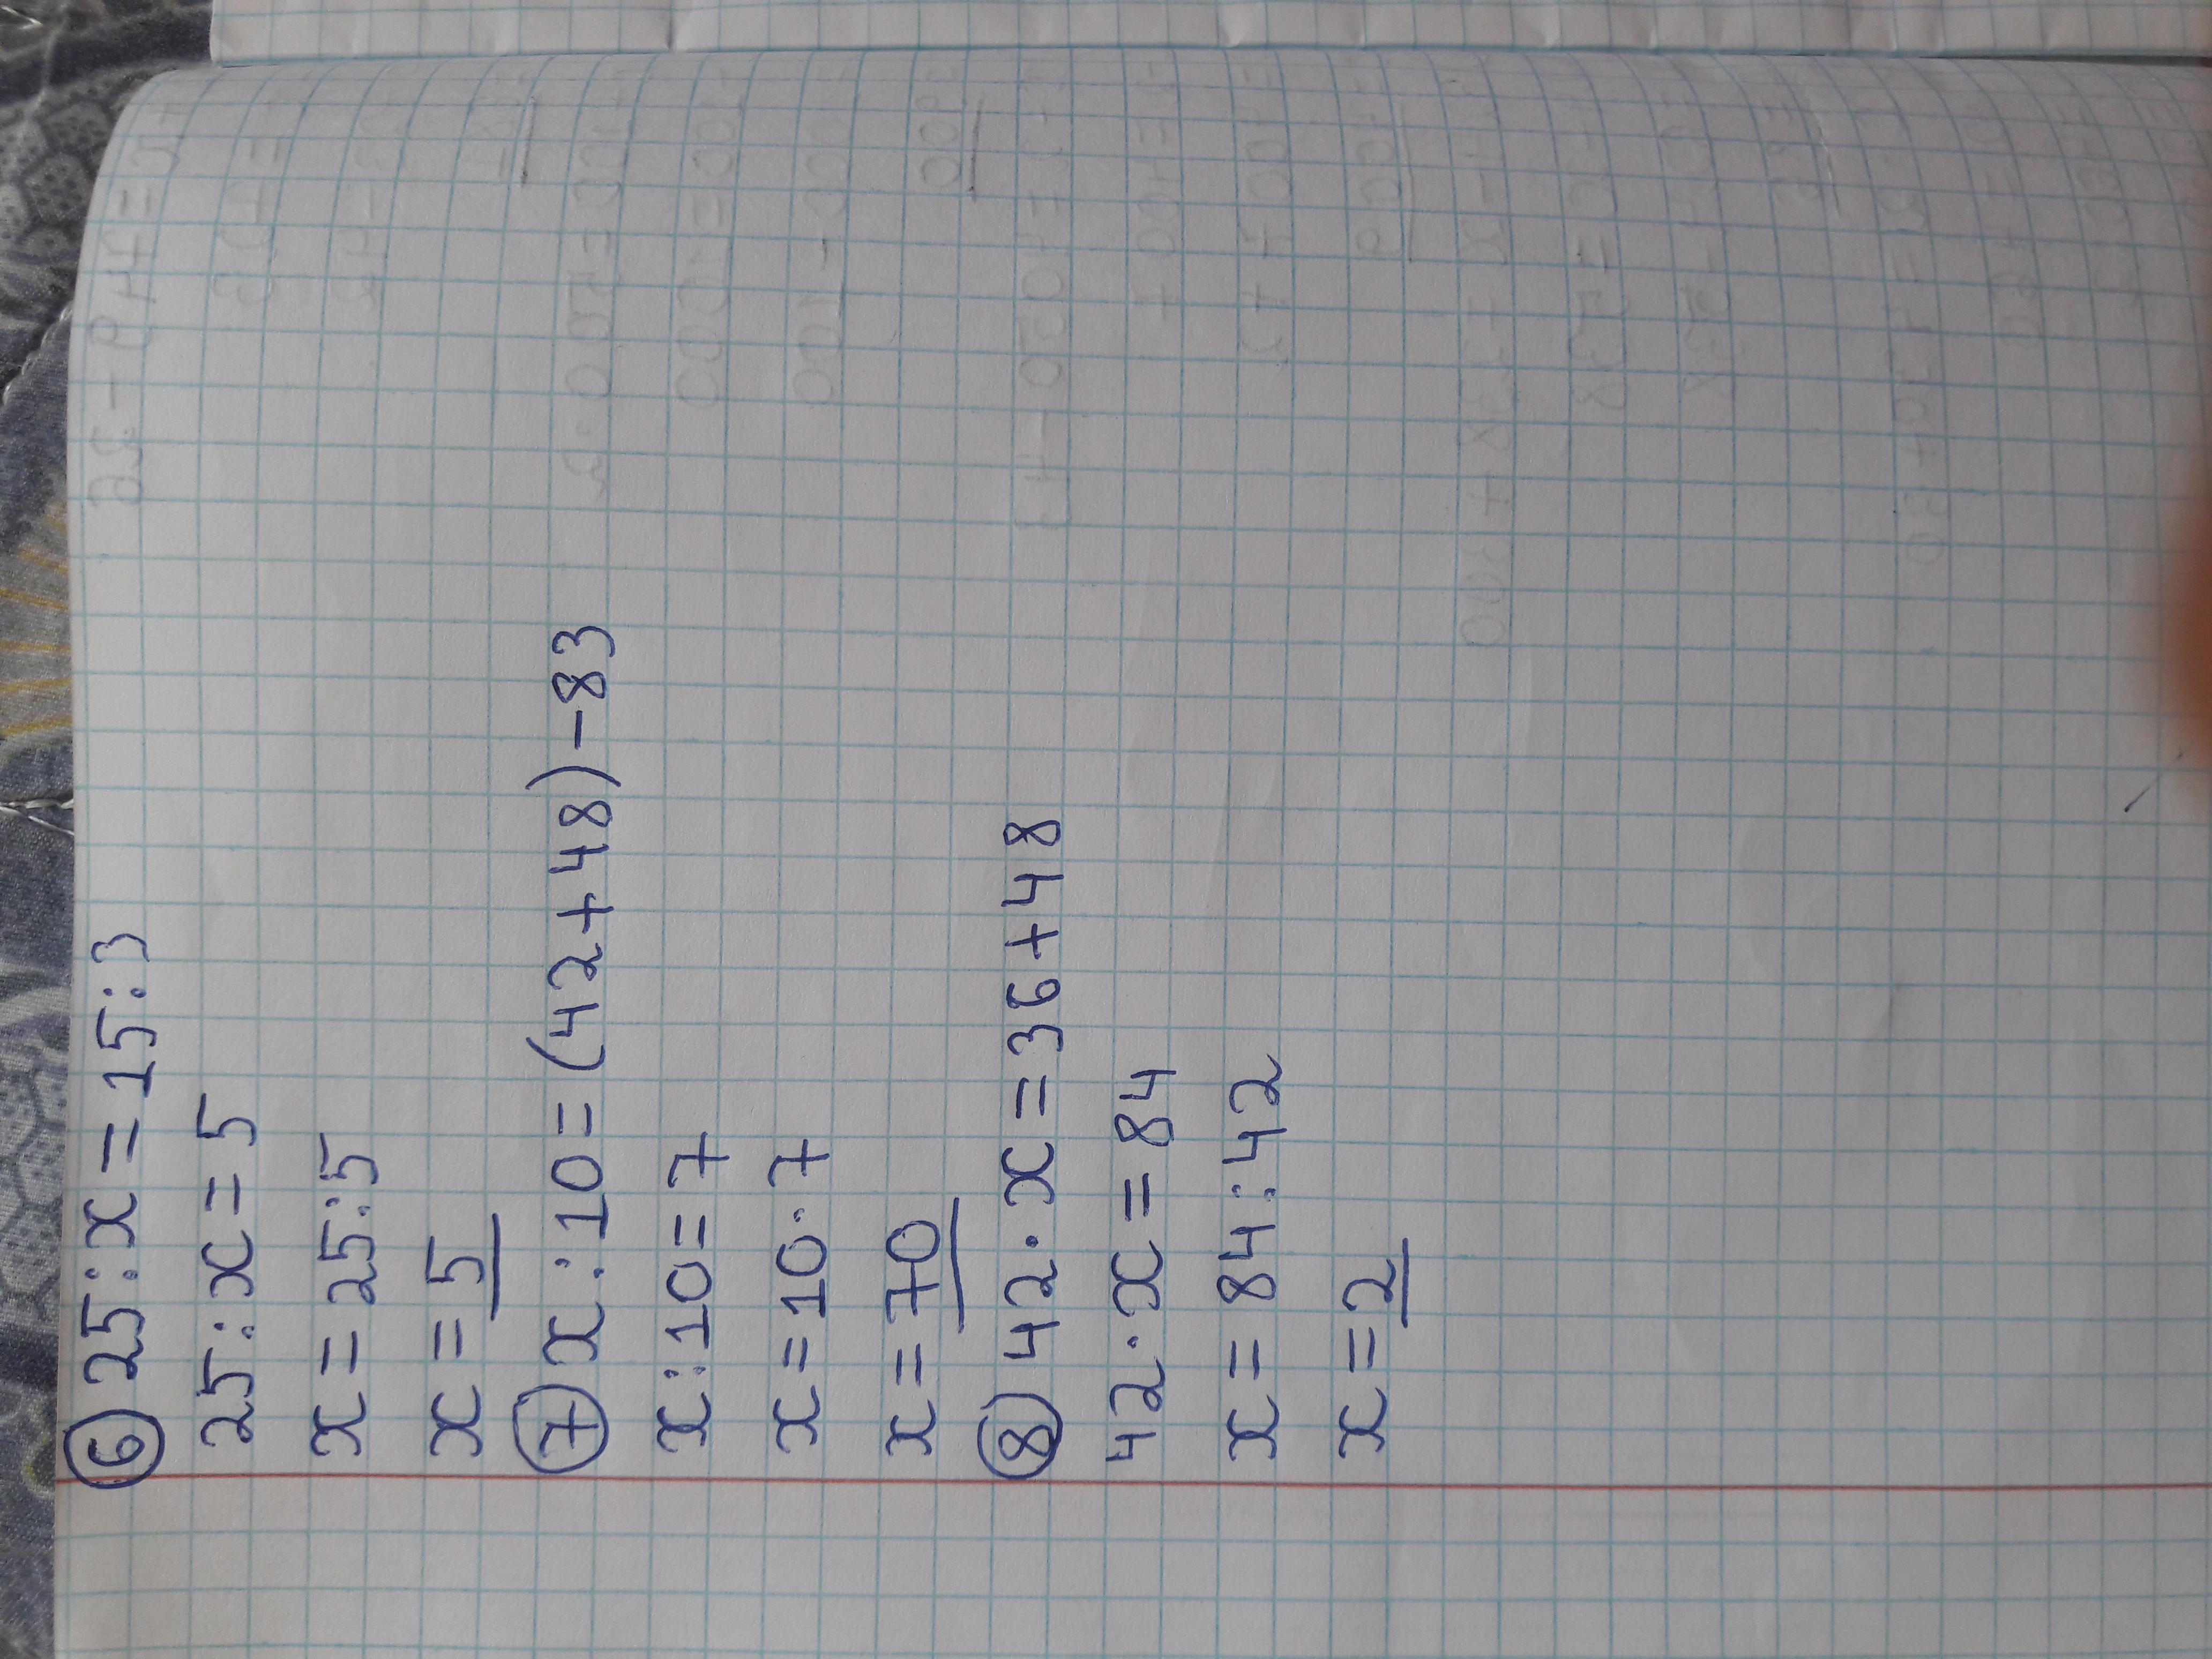 6 25:x=15:3
25:x=5
x=25:5
x=5
7 x:10=(42+48)-83
x:10=7
x=10·7
x=70
8 42·x=36+48
42·x=84
x=84:42
x=2